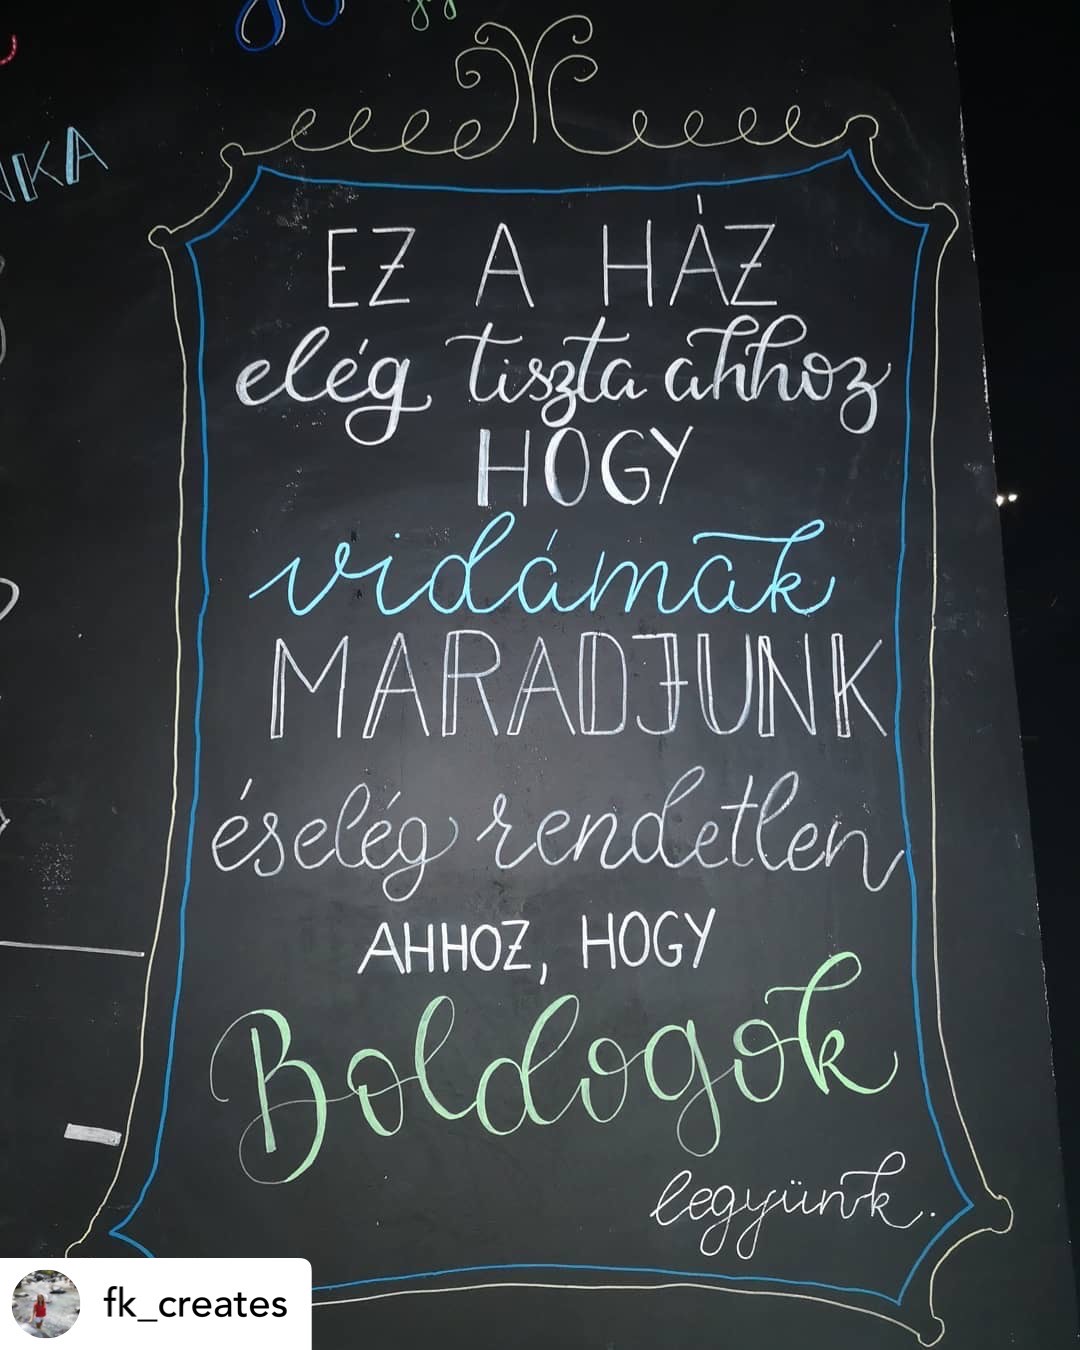 NKA
EZ A HÁZ
elég tiszta ahhoz
HOGY
vidámak
MARADJUNK
és elég rendetlen
AHHOZ, HOGY
Boldogok
legyünk.
fk_creates